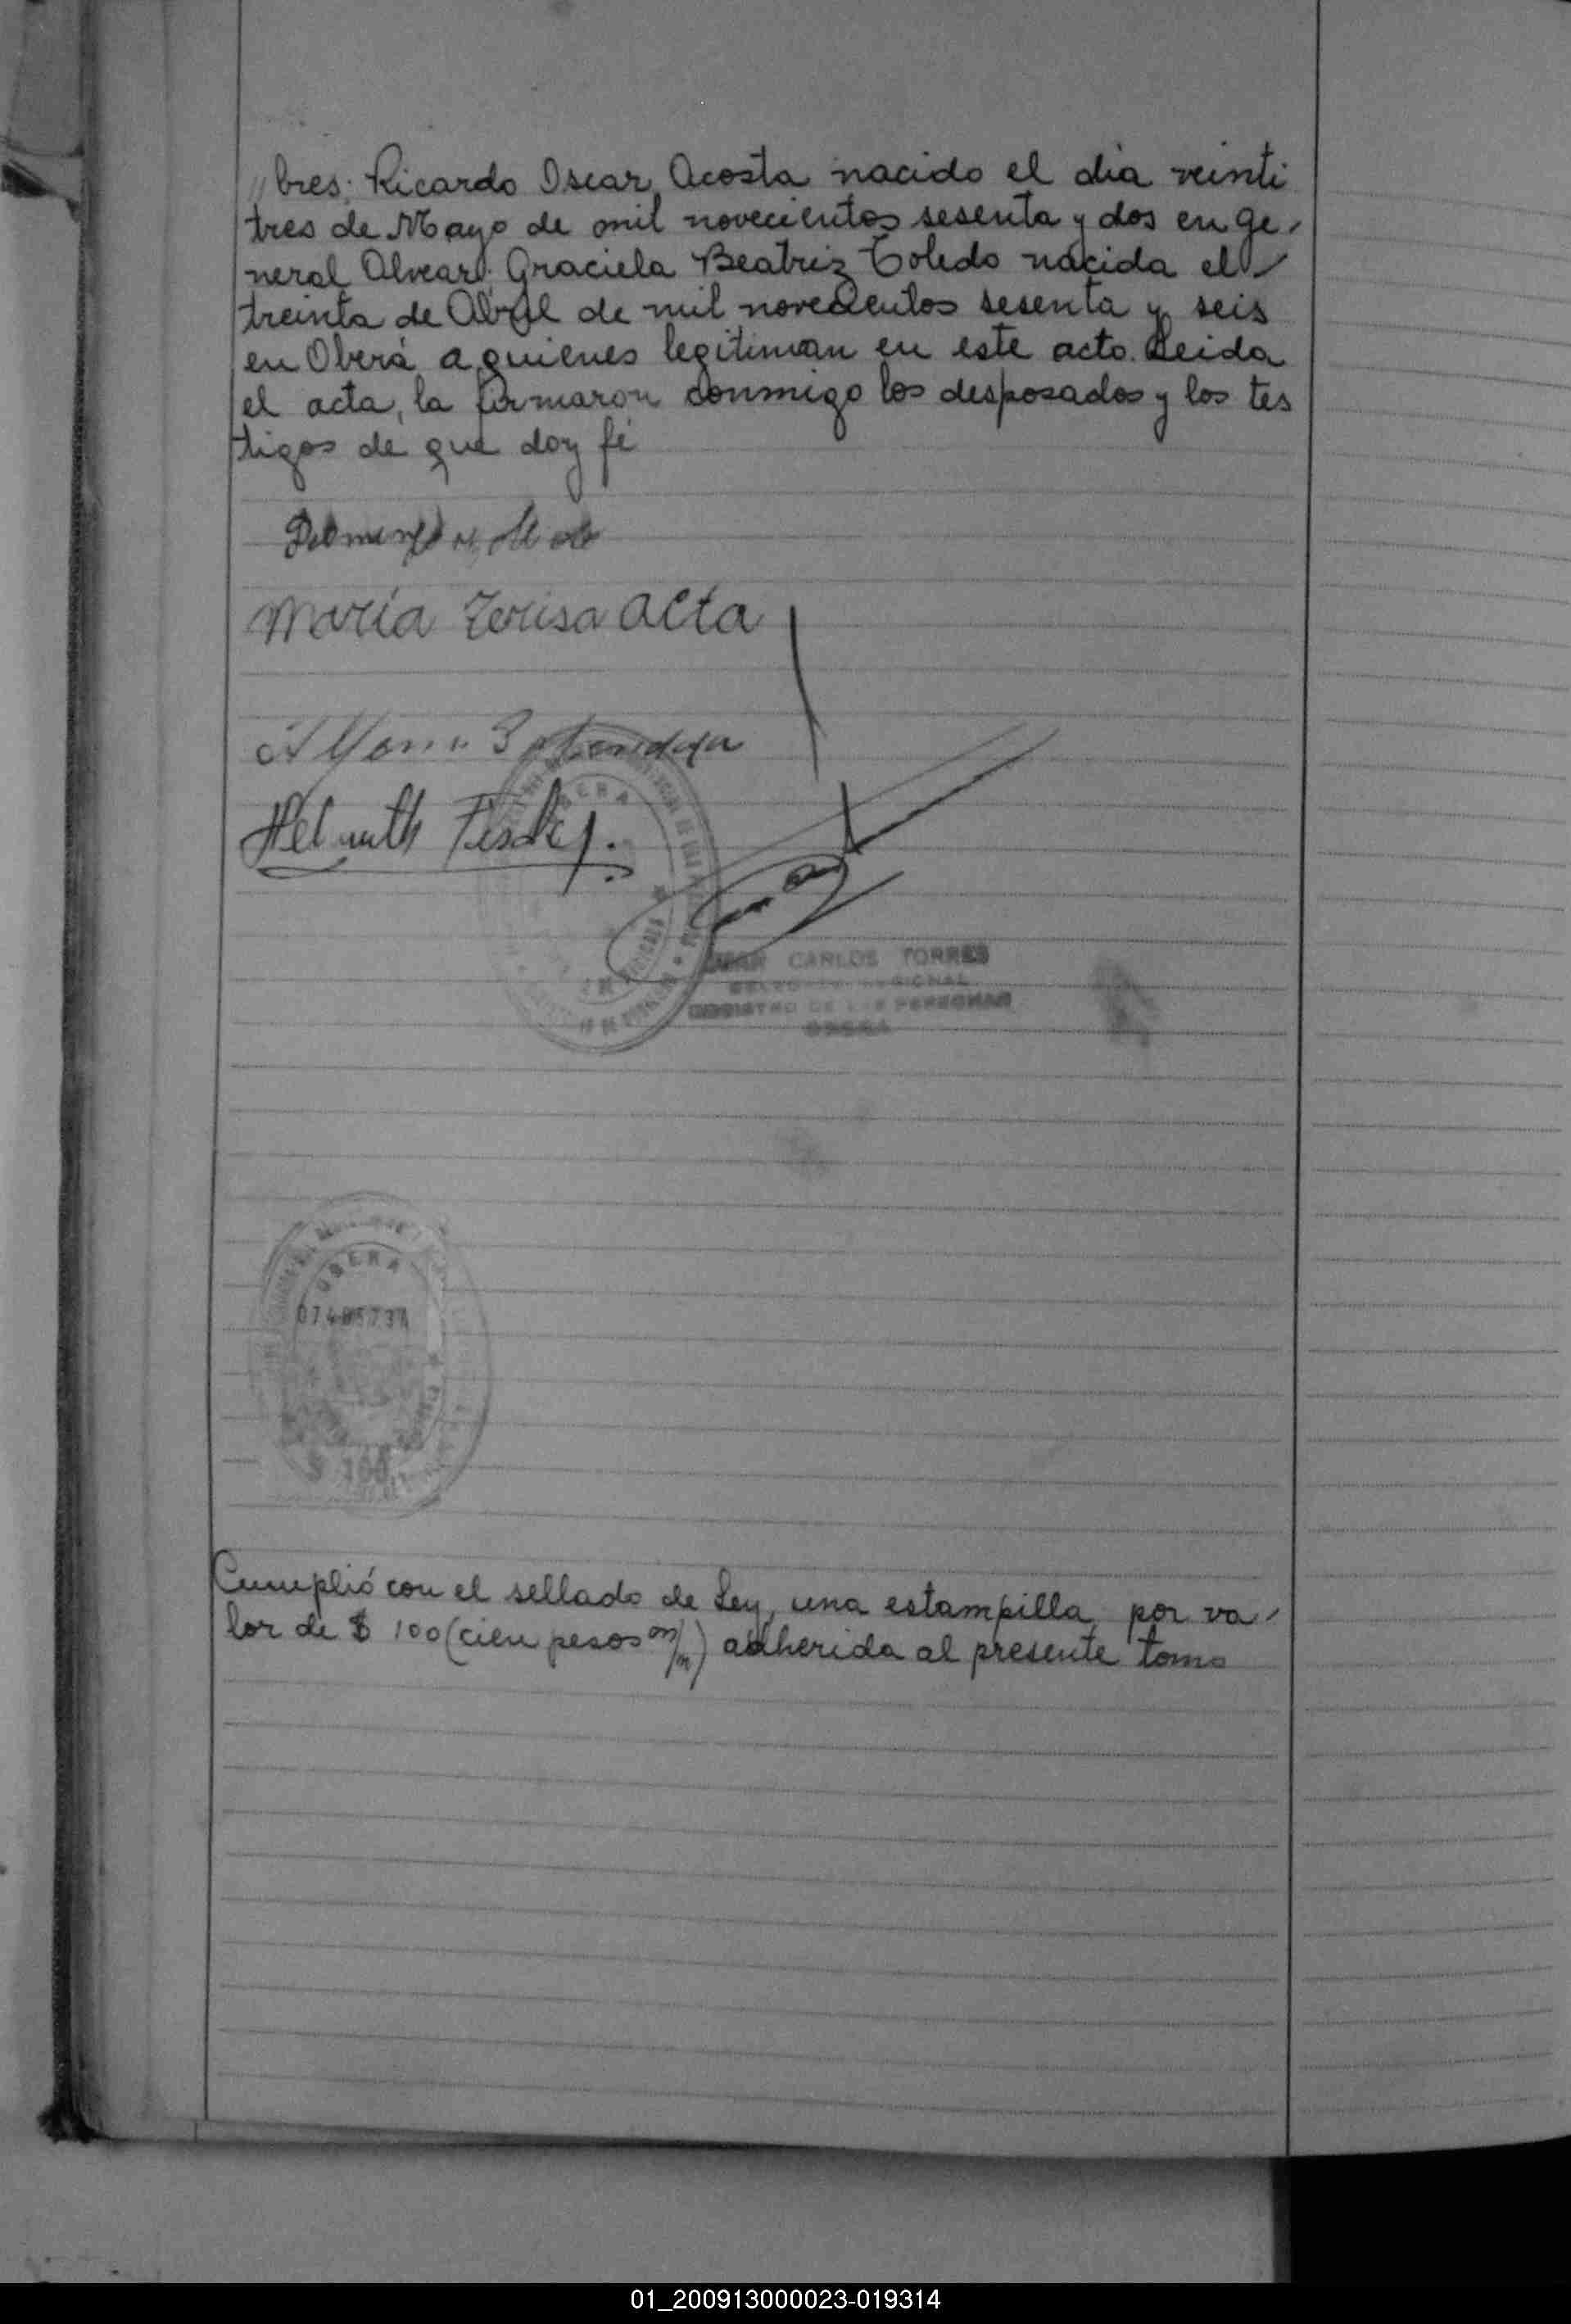 "bres: Ricardo Oscar Acosta nacido el dia veinti
tres de Mayo de mil novecientos sesenta y dos en Ge-
neral Alvear; Graciela Beatriz Toledo nacida el
treinta de Abril de mil novecientos sesenta y seis
en Oberá a quienes legitiman en este acto. Leida
el acta, la firmaron conmigo los desposados y los tes
tigos de que doy fé
María Terisa acta
Helmuth
OBERA
CARLOS TORRES
REGISTRO DE LAS PERSONAS
OBERA
OBERA
$ 100
Cumplió con el sellado de Ley, una estampilla, por va-
lor de $ 100 (cien pesos m/n) adherida al presente tomo
01_200913000023-019314